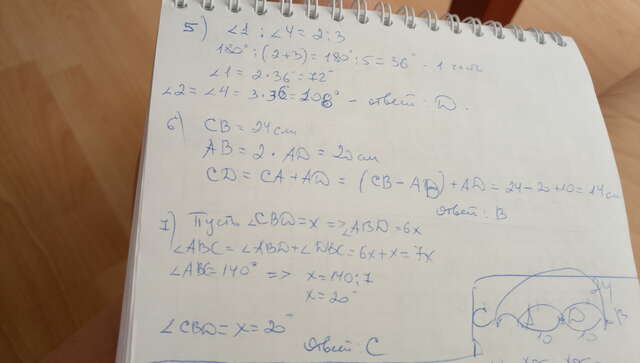 5) ∠1 : ∠4 = 2 : 3
180° : (2+3) = 180° : 5 = 36° - 1 часть
∠1 = 2·36° = 72°
∠2 = ∠4 = 3·36° = 108° - ответ: D.
6) CB = 24 см
AB = 2 · AD = 20 см
CD = CA + AD = (CB - AB) + AD = 24 - 20 + 10 = 14 см
Ответ: B
7) Пусть ∠CBD = x => ∠ABD = 6x
∠ABC = ∠ABD + ∠DBC = 6x + x = 7x
∠ABC = 140° => x = 140 : 7
x = 20°
∠CBD = x = 20°
Ответ C
24
C A D B
10 10